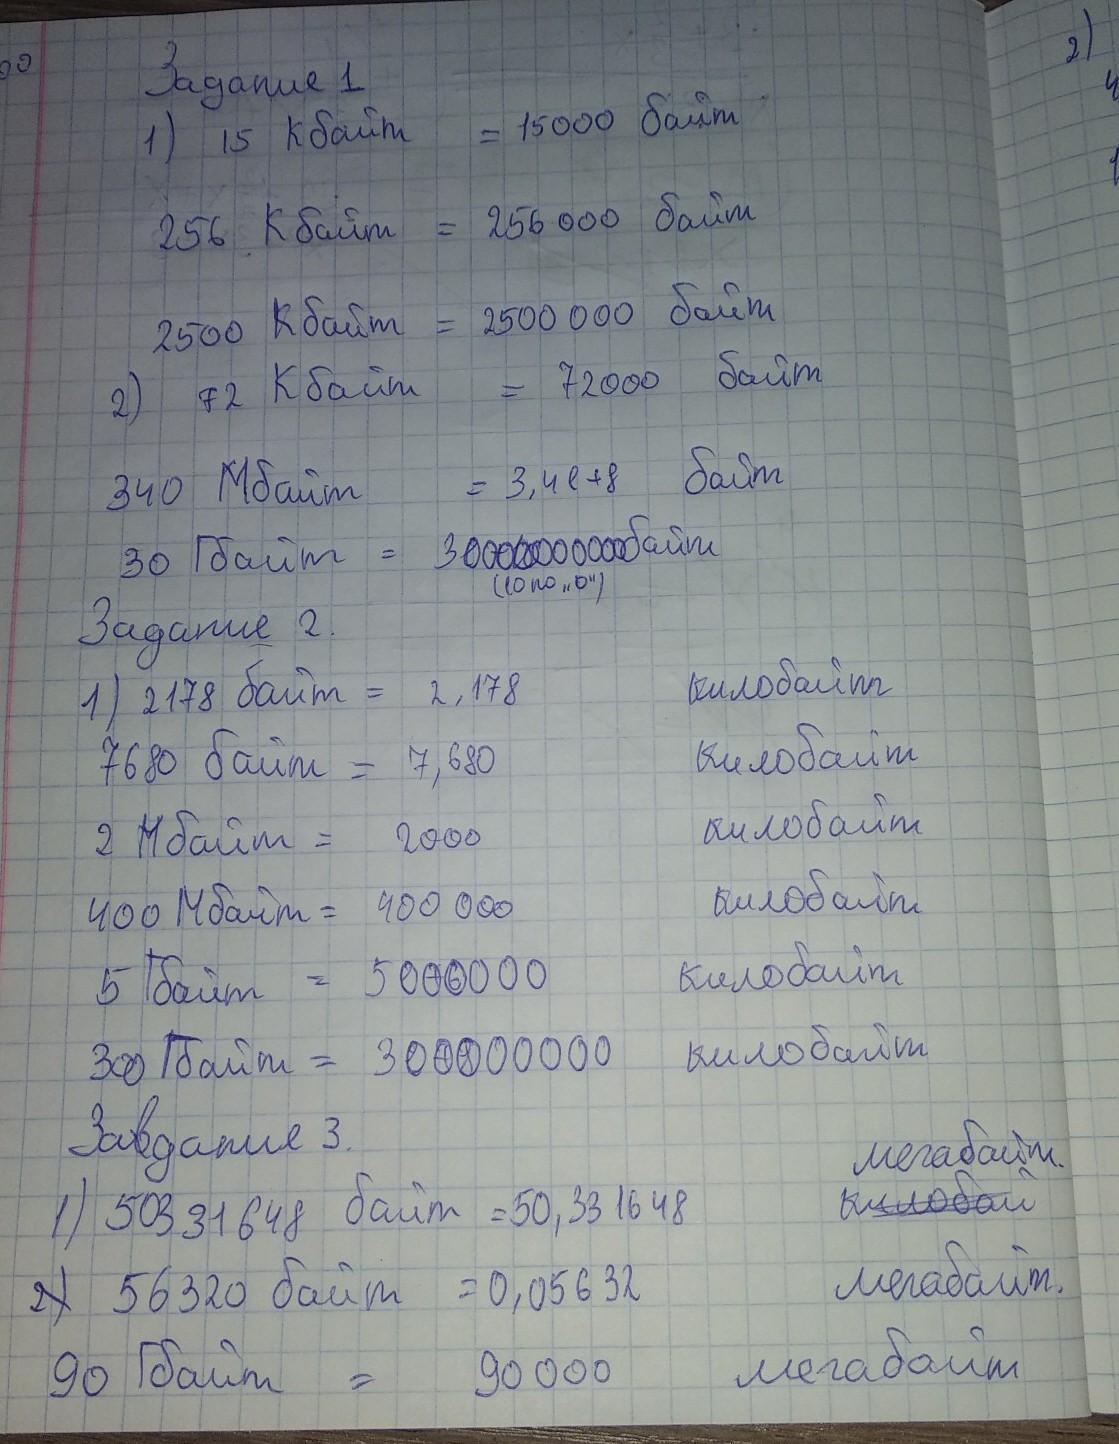 Задание 1
1) 15 Кбайт = 15000 байт
256 Кбайт = 256000 байт
2500 Кбайт = 2500 000 байт
2) 72 Кбайт = 72000 байт
340 Мбайт = 3,4e+8 байт
30 Гбайт = 30000000000байт
(10 по „0")
Задание 2.
1) 2178 байт = 2,178 килобайт
7680 байт = 7,680 килобайт
2 Мбайт = 2000 килобайт
400 Мбайт = 400 000 килобайт
5 Гбайт = 5000000 килобайт
300 Гбайт = 300000000 килобайт
Завдание 3.
мегабайт.
1) 50331648 байт = 50,331648 килобай
2) 56320 байт = 0,05632 мегабайт.
90 Гбайт = 90000 мегабайт
2)